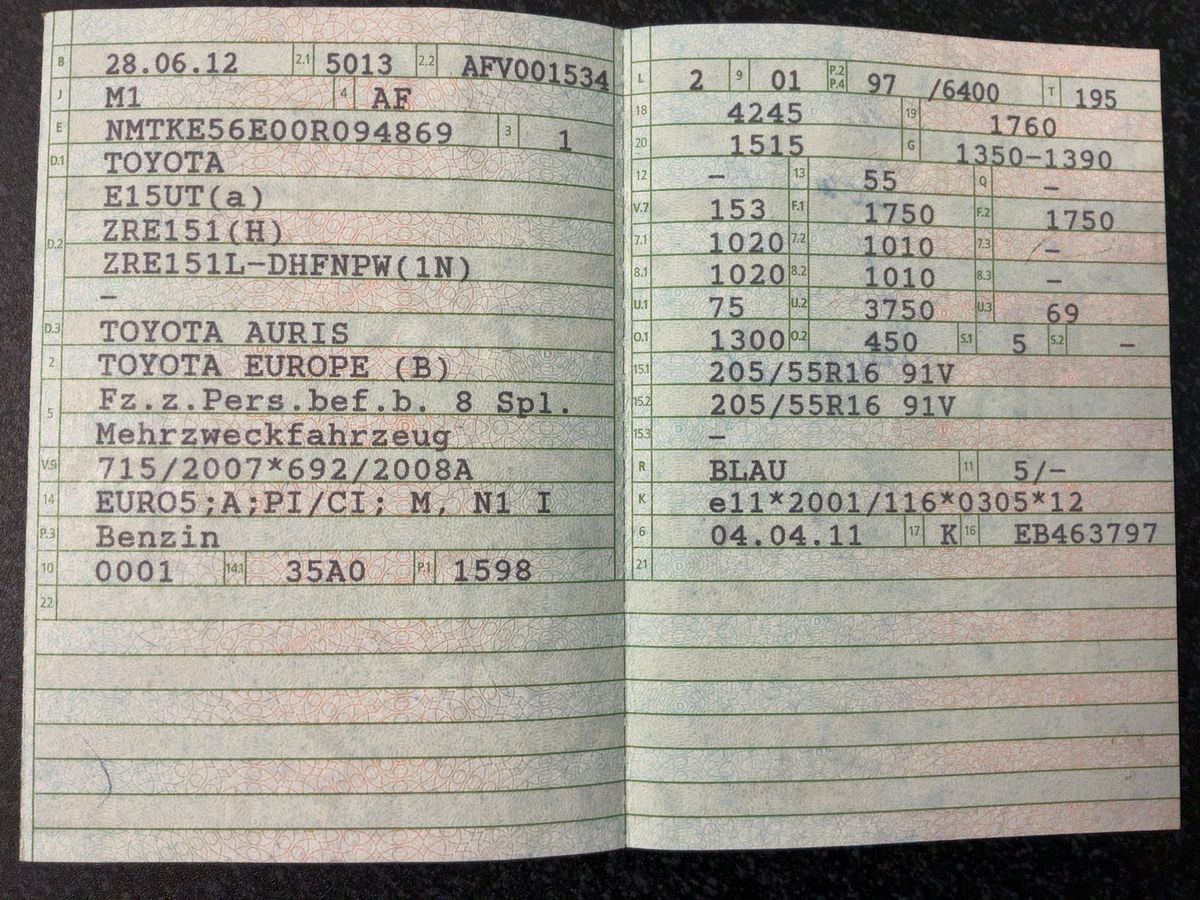 B 28.06.12 2.1 5013 2.2 AFV001534
J M1 4 AF
E NMTKE56E00R094869 3 1
D.1 TOYOTA
E15UT(a)
D.2 ZRE151(H)
ZRE151L-DHFNPW(1N)
-
D.3 TOYOTA AURIS
2 TOYOTA EUROPE (B)
5 Fz.z.Pers.bef.b. 8 Spl.
Mehrzweckfahrzeug
V.9 715/2007*692/2008A
14 EURO5;A;PI/CI; M, N1 I
P.3 Benzin
10 0001 14.1 35A0 P.1 1598
22
L 2 9 01 P.2 P.4 97 /6400 T 195
18 4245 19 1760
20 1515 G 1350-1390
12 - 13 55 Q -
V.7 153 F.1 1750 F.2 1750
7.1 1020 7.2 1010 7.3 -
8.1 1020 8.2 1010 8.3 -
U.1 75 U.2 3750 U.3 69
O.1 1300 O.2 450 S.1 5 S.2 -
15.1 205/55R16 91V
15.2 205/55R16 91V
15.3 -
R BLAU 11 5/-
K e11*2001/116*0305*12
6 04.04.11 17 K 16 EB463797
21